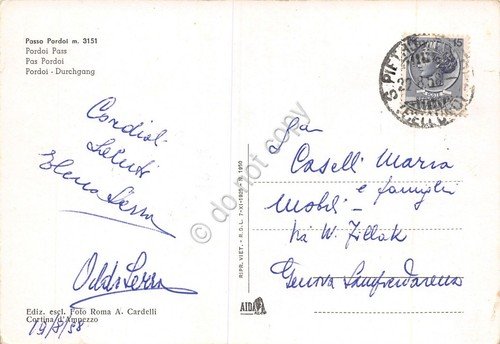 Passo Pordoi m. 3151
Pordoi Pass
Pas Pordoi
Pordoi - Durchgang
Cordiali
Saluti
Elena Serra
Oddo Serra
Ediz. escl. Foto Roma A. Cardelli
Cortina d'Ampezzo
19/8/58
RIPR. VIET. - R.D.L. 7-XI-1925 - N. 1950
do not copy
15
S. PIETRO
Caselli Maria
e famiglia
Mobili
Via W. Fillak
Genova Sampierdarena
AIDA